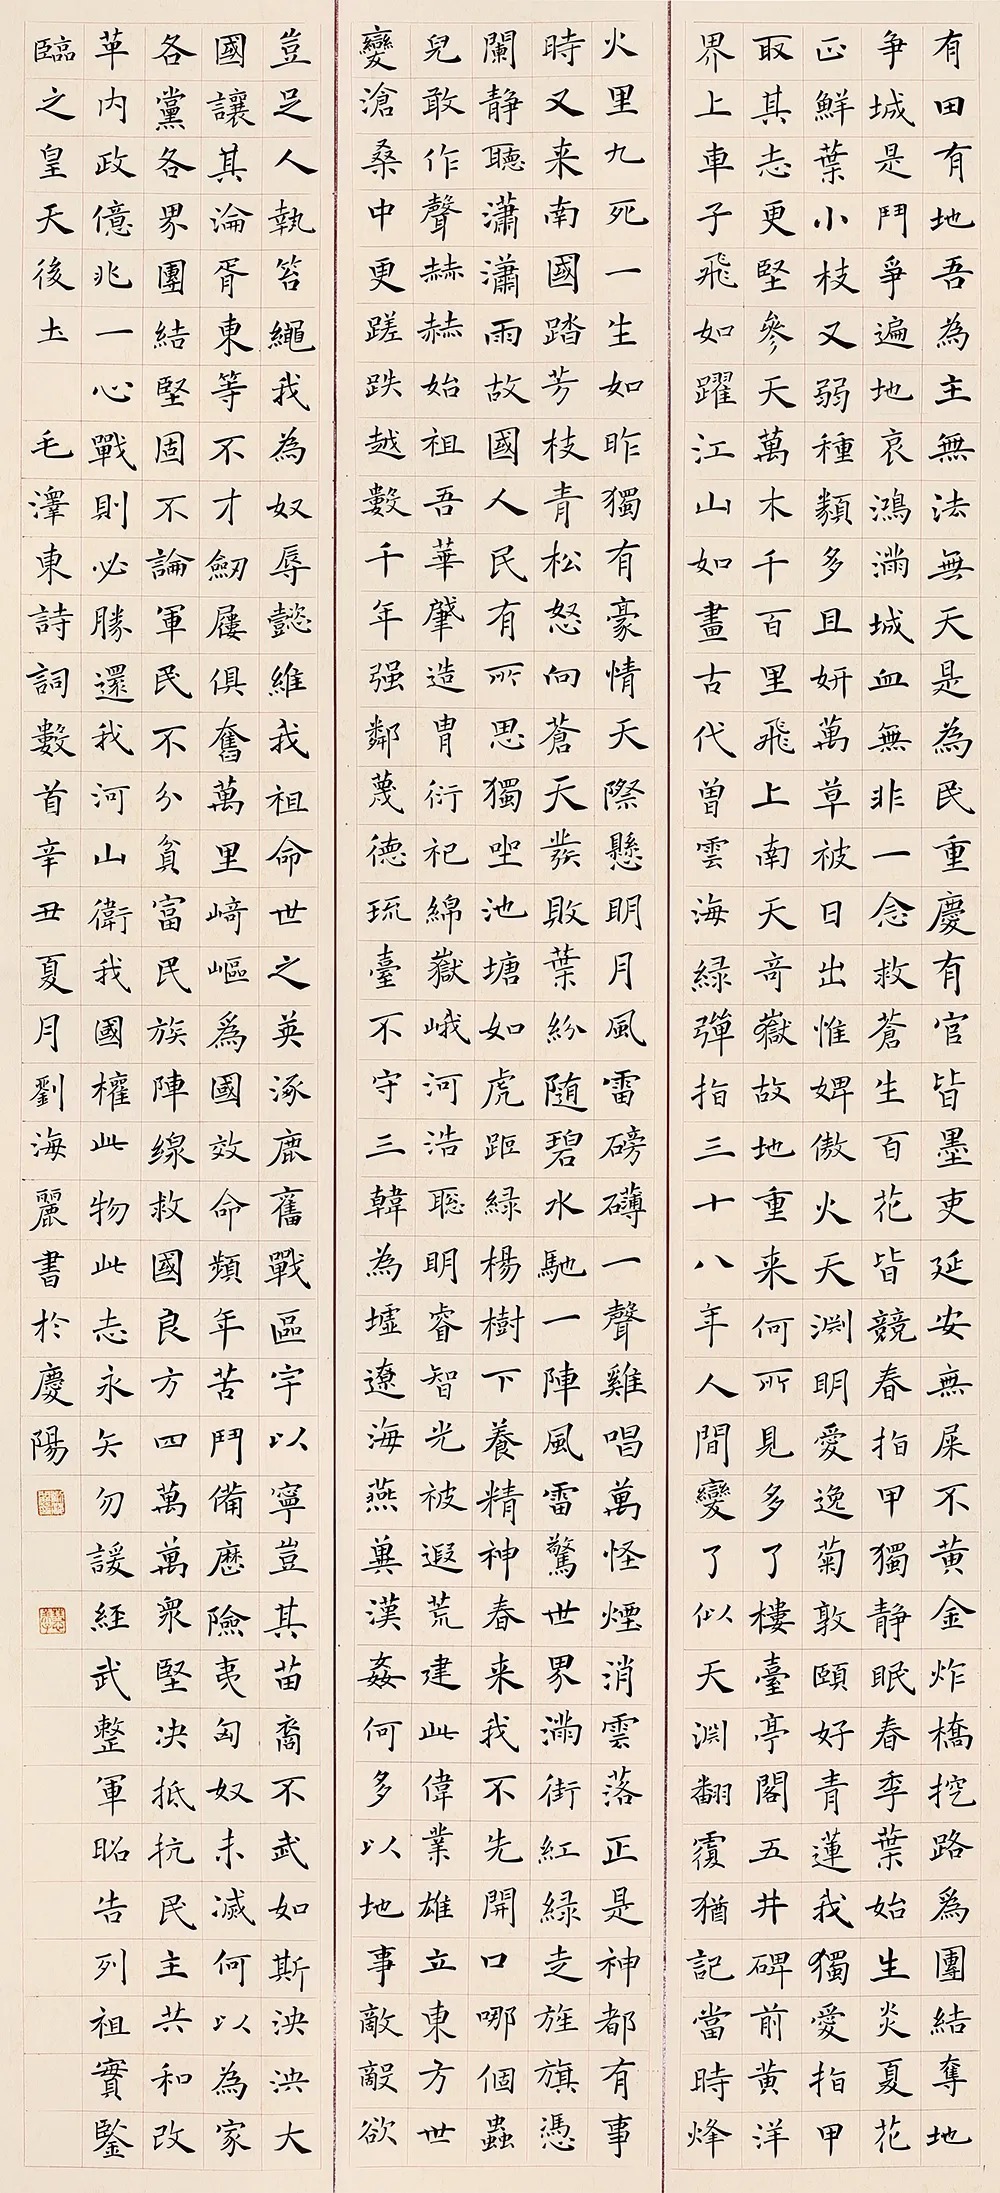 有田有地吾為主無法無天是為民重慶有官皆墨吏延安無屎不黃金炸橋挖路爲團結奪地
争城是鬥爭遍地哀鴻滿城血無非一念救蒼生百花皆競春指甲獨静眠春季葉始生炎夏花
正鮮葉小枝又弱種類多且妍萬草被日出惟婢傲火天淵明愛逸菊敦頤好青蓮我獨愛指甲
取其志更堅參天萬木千百里飛上南天奇嶽故地重来何所見多了樓臺亭閣五井碑前黄洋
界上車子飛如躍江山如畫古代曾雲海緑彈指三十八年人間變了似天淵翻覆猶記當時烽
火里九死一生如昨獨有豪情天際懸明月風雷磅礴一聲雞唱萬怪煙消雲落正是神都有事
時又来南國踏芳枝青松怒向蒼天發敗葉紛随碧水馳一陣風雷驚世界滿街紅緑走旌旗憑
闌静聽瀟瀟雨故國人民有所思獨坐池塘如虎踞緑楊樹下養精神春来我不先開口哪個蟲
兒敢作聲赫赫始祖吾華肇造冑衍祀綿嶽峨河浩聰明睿智光被遐荒建此偉業雄立東方世
變滄桑中更蹉跌越數千年强鄰蔑德琉臺不守三韓為墟遼海燕冀漢姦何多以地事敵敵欲
豈足人執笞繩我為奴辱懿維我祖命世之英涿鹿舊戰區宇以寧豈其苗裔不武如斯泱泱大
國讓其淪胥東等不才劒屨俱奮萬里崎嶇爲國效命頻年苦鬥備歷險夷匈奴未滅何以為家
各黨各界團結堅固不論軍民不分貧富民族陣線救國良方四萬萬衆堅決抵抗民主共和改
革内政億兆一心戰則必勝還我河山衛我國權此物此志永矢勿諼經武整軍昭告列祖實鑒
臨之皇天後土 毛澤東詩詞數首辛丑夏月劉海麗書於慶陽